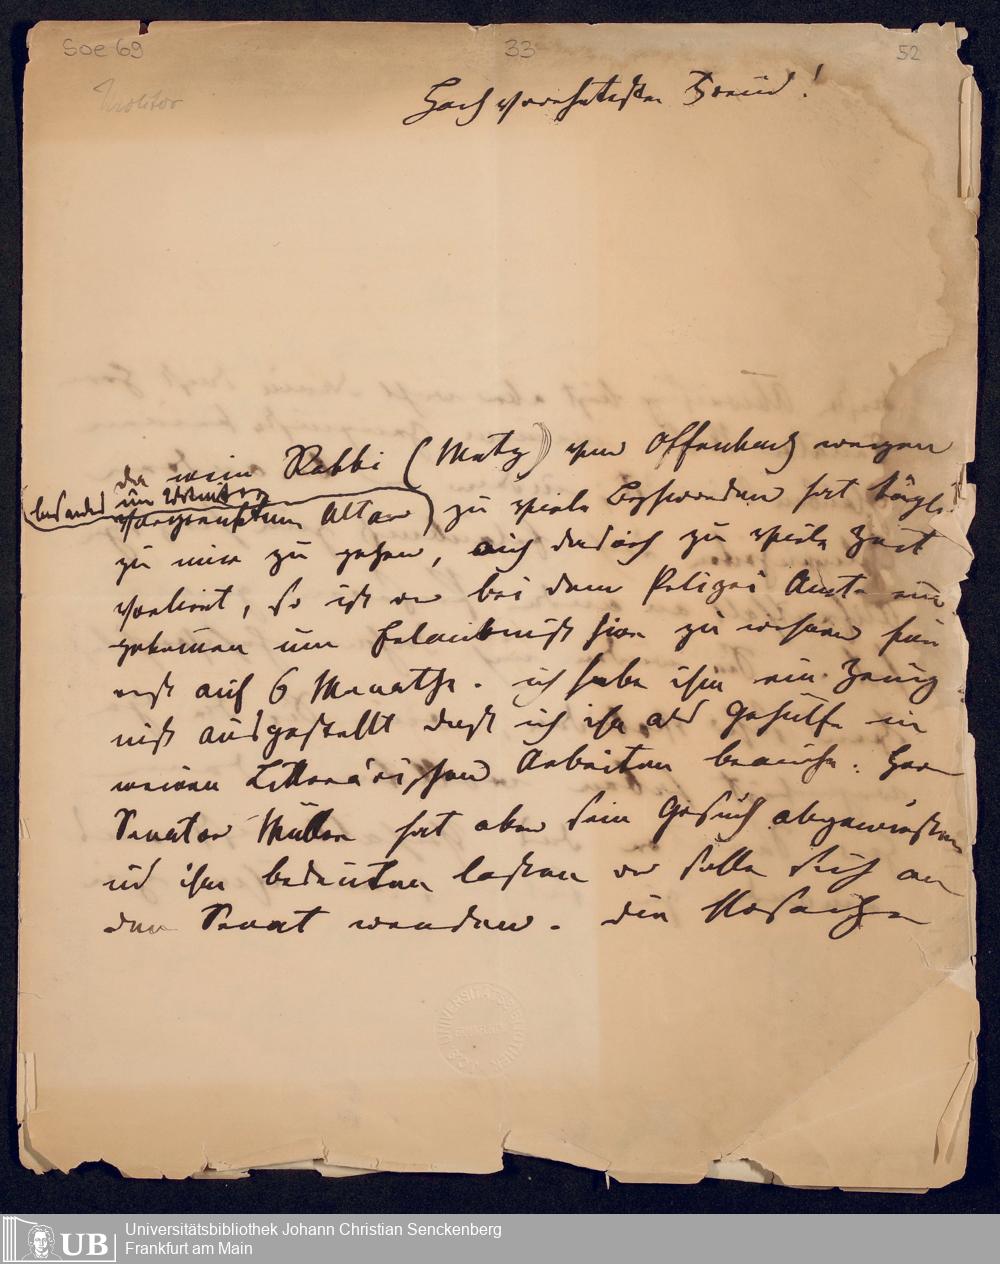 Soe 69
33
52
Molitor
Hoch verehrtester Freund!
da mein Rabbi (Metz) von Offenbach wegen
besonders im Winter
vorgerücktem Alter zu viele Beschwerden hat tägl.
zu mir zu gehen, auch dadurch zu viele Zeit
verliert, so ist er bei dem Polizei Amte ein
gekomen um Erlaubniß hier zu wohnen für
erst auf 6 Monathe. ich habe ihm ein Zeug
niß ausgestellt daß ich ihn als Gehülfe in
meinen Litterärischen Arbeiten brauche. Herr
Senator Müller hat aber sein Gesuch abgewiesen
ud ihm bedeuten lassen er solle sich an
den Senat wenden. die Ursache
UNIVERSITÄTSBIBLIOTHEK
UB
Universitätsbibliothek Johann Christian Senckenberg
Frankfurt am Main